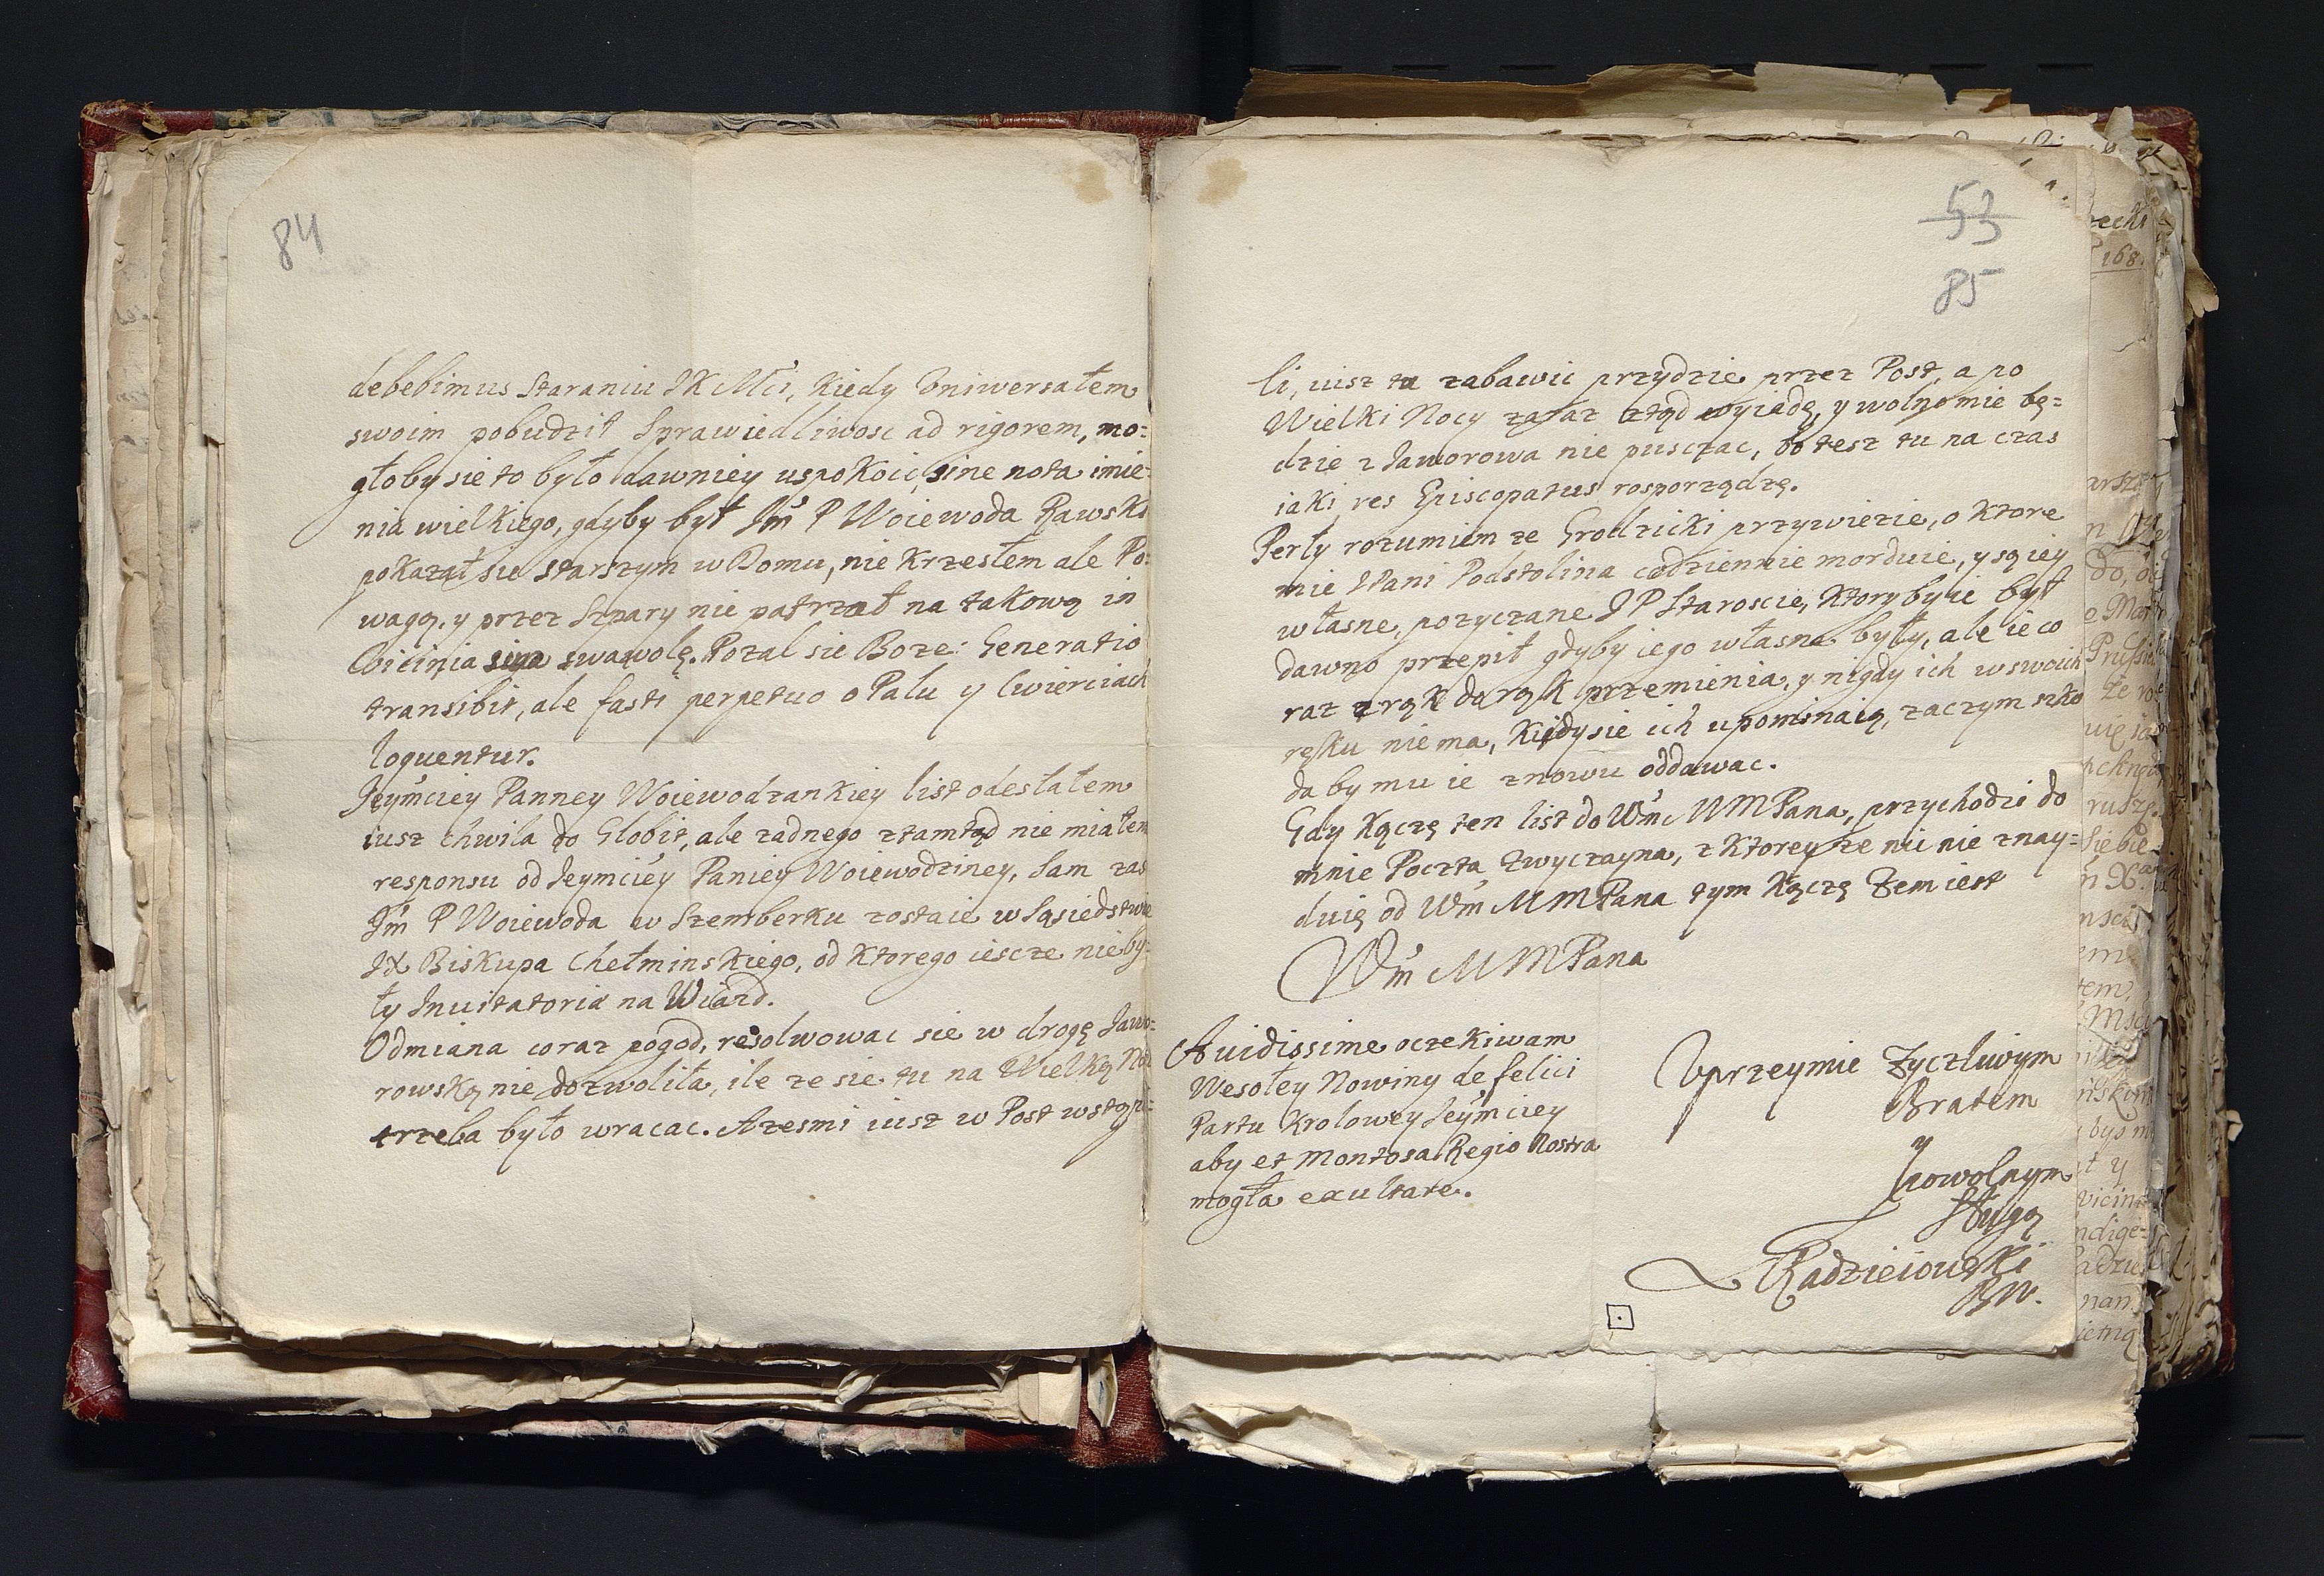 84
debebimus Staraniu JKMci, Kiedy Vniwersałem
swoim pobudził Sprawiedliwosc ad rigorem, mo=
głoby sie to było dawniey uspokoic, sine nota imie=
nia wielkiego, gdyby był Jm̃ P Woiewoda Rawski
pokazał sie starszym w Domu, nie Krzesłem ale Po=
wagą, y przez Szpary nie patrzał na takową in
Vicinia swawolę. Pozal sie Boze: Generatio
transibit, ale fasti perpetuo o Palu y Cwierciach
loquentur.
Jeymciey Panney Woiewodzankiey list odesłałem
iusz chwila do Globit, ale zadnego ztamtąd nie miałem
responsu od Jeymciey Paniey Woiewodziney, Sam zas
Jm̃ P Woiewoda w Szemberku zostaie w Sąsiedstwie
JX Biskupa Chełminskiego, od Ktorego iescze nieby=
ły Inuitatoria na Wiazd.
Odmiana coraz pogod, resolwowac sie w drogę Jawo=
rowską nie dozwoliła, ile ze sie tu na Wielką Noc
trzeba było wracac. Azesmi iusz w Post wstąpi=
53
85
li, iusz tu zabawic przydzie przez Post, a po
Wielki Nocy zaraz ztąd wyiadę, y wolno mie bę=
dzie z Jaworowa nie pusczac, bo tesz tu na czas
iaki res Episcopatus rosporządzę.
Perły rozumiem ze Grodzicki przywiezie, o Ktore
mie Pani Podstolina codziennie morduie, y są iey
własne, pozyczane J P Staroscie, Ktoryby ie był
dawno przepił gdyby iego własne były, ale ie co
raz z rąk do rąk przemienia, y nigdy ich w swoich
ręku nie ma, Kiedy sie ich upominaią, zaczym szko
da by mu ie znowu oddawac.
Gdy Kączę ten list do Wm̃ MMPana, przychodzi do
mnie Poczta Zwyczayna, z Ktorey ze nic nie znay=
duię od Wm̃ MMPana tym Kączę Zem iest
Wm̃ MMPana
Auidissime oczekiwam
Wesołey Nowiny de felici
Partu Krolowey Jeymciey
aby et Montosa Regio Nostra
mogła exultare.
Vprzeymie Zyczliwym
Bratem
y
powolnym
Sługą
Radzieiowski
BW.